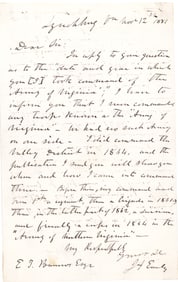 Lynchburg Va Nov 12th 1881
Dear Sir:
In reply to your question
as to the "date and year in which
you took command of the
Army of Virginia", I have to
inform you that I never commanded
any troops known as the "Army of
Virginia" - we had no such Army on
our side - I did command the
Valley District in 1864, and the
publication I
when and how I came into command
there - Before this, my command had
been 1st a regiment, then a brigade in 1861,
then, in the latter part of 1862, a division,
and finally a corps in 1864 in the
"Army of Northern Virginia" -
Very Respectfully
Yours &c
J A Early
E. T. Esqr